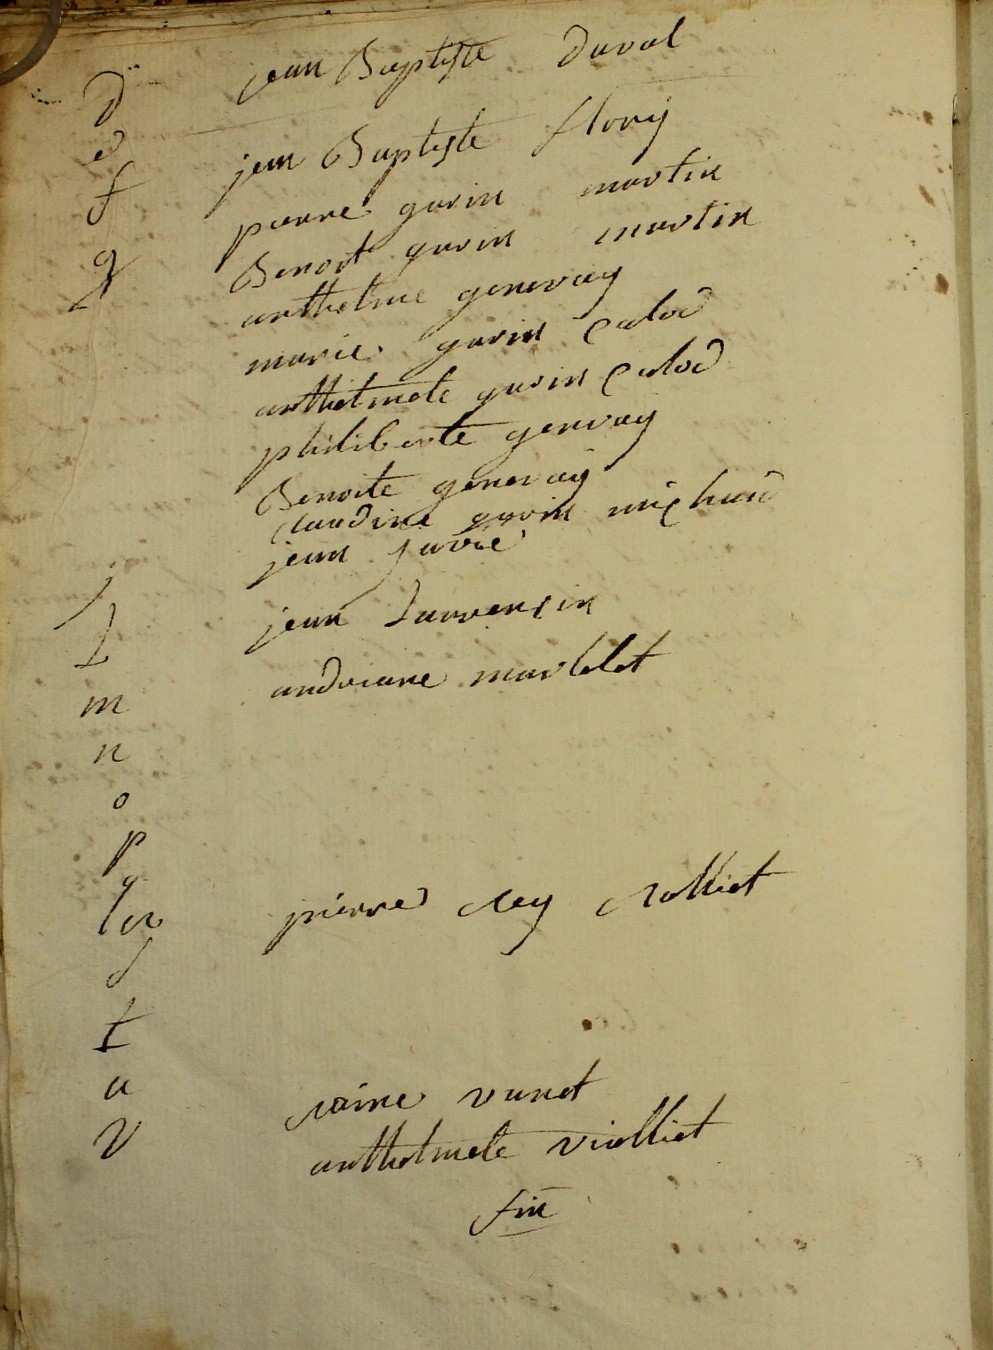 D jean Baptiste Duval
e
f jean Baptiste flory
g pierre gurin martin
Benoit gurin martin
anthelme genevay
marie gurin Calod
anthelmete gurin Calod
philiberte genvay
Benoite genevay
claudine gurin michaud
j jean juvie
L jean Laurencin
m andriane martelet
n
o
p
q
R pierre Rey Rolliet
S
t
u
V raine vunet
anthelmete violliet
fin